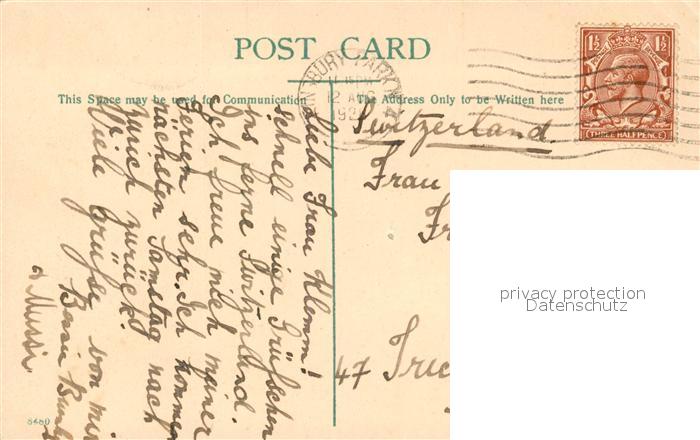 POST CARD
This Space may be used for Communication
The Address Only to be Written here
BURY PARK
12 AUG
192
1½ 1½
THREE HALFPENCE
Liebe Frau Klemm!
Schnell einige Grüsschen
ins ferne Switzerland.
Ich freue mich meiner
Ferien sehr. Ich komme
nächsten Samstag nach
Zürich zurück.
Viele Grüsse von mir
Bessie
& Mussi
Switzerland
Frau
Fr
47
privacy protection
Datenschutz
8480